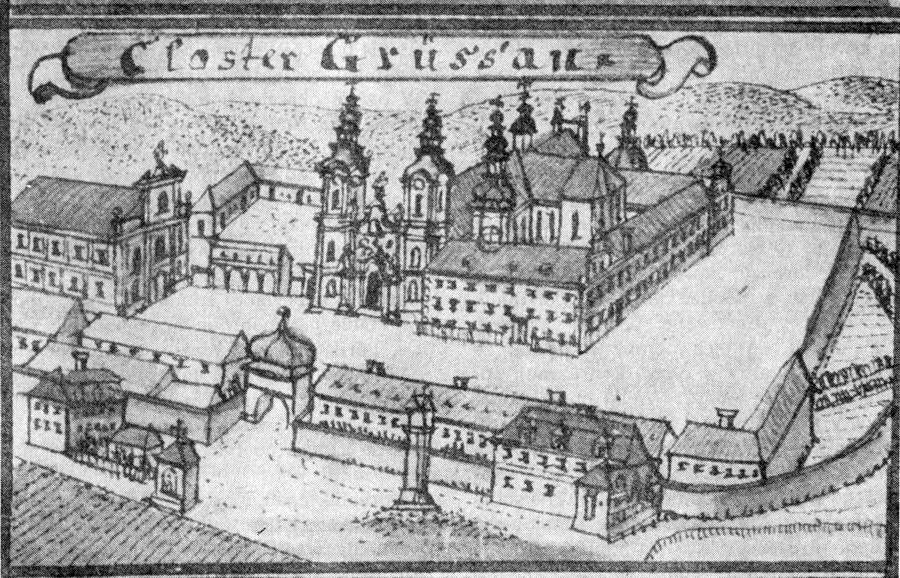 Closter Grüssau